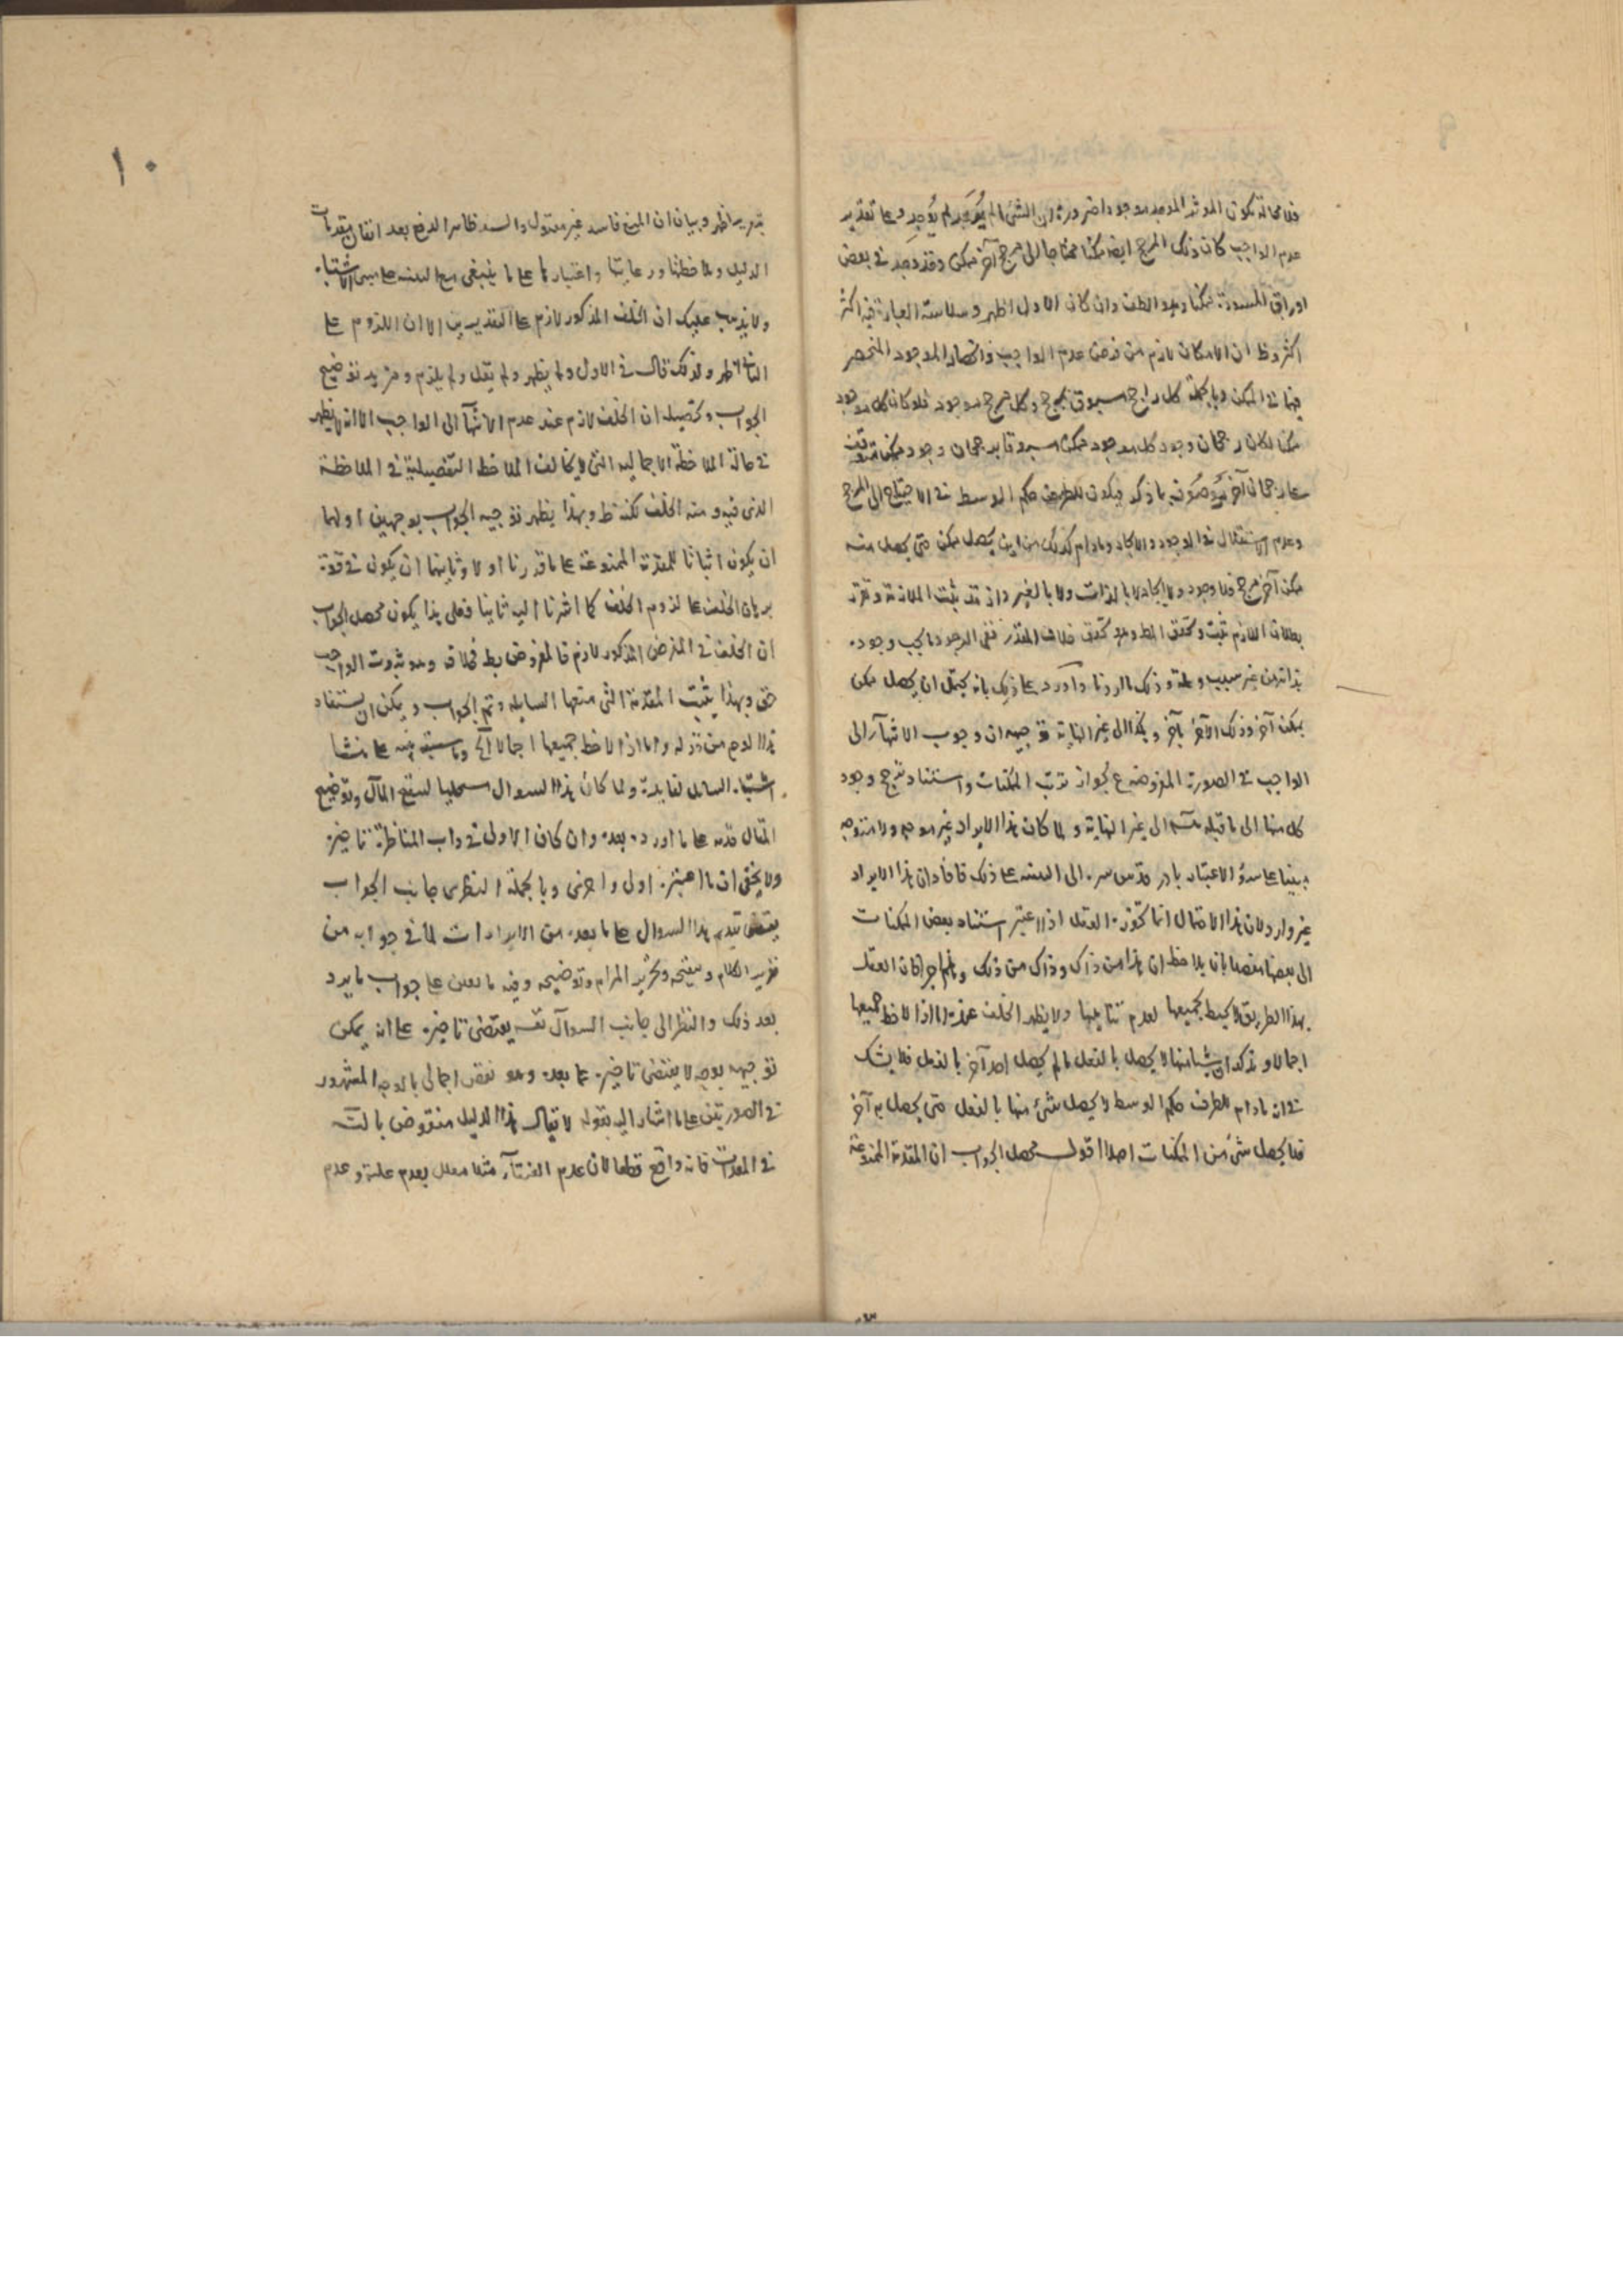 فلا محالة يكون المؤثر الموجد موجودا ضرورة ان الشئ ما لم يُوجَد لم يُوجِد وعلى تقدير
عدم الواجب كان ذلك المرجح ايضا ممكنا محتاجا الى مرجح آخر ممكن وقد وجد في بعض
اوراق المسودة ممكنا وهو الطف وان كان الاول اظهر وسلاسة العبارة فيه اكثر
اكثر وظ ان الامكان لازم من فرض عدم الواجب وانحصار الموجود المنحصر
فيها في الممكن وبالجملة كل راجح مسبوق بمرجح وكل مرجح موجود فلو كان كل موجود
ممكنا لكان رجحان وجود كل موجود ممكن مسبوقا برجحان وجود ممكن متوقف
على رجحان آخر موصوف بما ذكر فيكون للطرف حكم الوسط في الاحتياج الى المرجح
وعدم الاستقلال في الوجود والايجاد وما دام كذلك من اين يحصل ممكن حتى يحصل منه
ممكن آخر مرجح فلا وجود ولا ايجاد لا بالذات ولا بالغير واذ قد ثبت الملازمة وتقرر
بطلان اللازم ثبت وتحقق المط وهو تحقق خلاف المقدر ففي الوجود ما يجب وجوده
بذاته من غير سبب وعلة وذلك ما اردنا واورد على ذلك بانه يحتمل ان يحصل ممكن
بممكن آخر وذلك الآخر بآخر وهكذا الى غير النهاية توجيهه ان وجوب الانتهاء الى
الواجب في الصورة المفروضة ع لجواز ترتب الممكنات واستناد ترجح وجود
كل منها الى ما قبله منه الى غير النهاية ولما كان هذا الايراد غير موجه ولا متوجه
مبنيا على سوء الاعتبار بادر قدس سره الى التنبيه على ذلك فافاد ان هذا الايراد
غير وارد لان هذا الاحتمال انما يجوزه العقل اذا اعتبر استناد بعض الممكنات
الى بعضها مفصلا بان يلاحظ ان هذا من ذاك وذاك من ذلك وهلم جرا فان العقل
بهذا الطريق لا يحيط بجميعها لعدم تناهيها ولا يظهر الخلف عنده اما اذا لاحظ جميعها
اجمالا وتذكر ان شيئا منها لا يحصل بالفعل ما لم يحصل احد آخر بالفعل فلا يشك
في انه ما دام للطرف حكم الوسط لا يحصل شئ منها بالفعل حتى يحصل به آخر
فلا يحصل شئ من الممكنات اصلا اقول محصل الجواب ان المقدمة الممنوعة
١٠
بتحرير اظهر وبيان ان المنع فاسد غير مقبول والسند ظاهر الدفع بعد اتقان مقدمات
الدليل وملاحظتها ورعايتها واعتبارها على ما ينبغي مع التنبيه على منشأ الاشتباه
ولا يذهب عليك ان الخلف المذكور لازم على التقديرين الا ان اللزوم على
الثاني اظهر ولذلك قال في الاول ولا يظهر ولم يقل ولم يلزم ومزيد توضيح
الجواب وتحصيله ان الخلف لازم عند عدم الانتهاء الى الواجب الا انه لا يظهر
في حالة الملاحظة الاجمالية التي لا يخالف الملاحظ التفصيلية في الملاحظة
الذي فيه ومنه الخلف نكتة ط وبهذا يظهر توجيه الجواب بوجهين اولهما
ان يكون اثباتا للمقدمة الممنوعة على ما قررنا اولا وثانيهما ان يكون في قوة
برهان الخلف على لزوم الخلف كما اشرنا اليه ثانيا فعلى هذا يكون محصل الجواب
ان الخلف في الفرض المذكور لازم فالمفروض بط فخلافه وهو ثبوت الواجب
حق وبهذا يثبت المقدمة التي منعها السايل وتم الجواب ويمكن ان يستفاد
هذا اللازم من قوله واما اذا لاحظ جميعها اجمالا الخ وما سبق تنبيه على منشا
اشتباه السائل لفائدة ولما كان هذا السوال مستجلبا لتنقيح المآل وتوضيح
المقال قدمه على ما اورده بعده وان كان الاولى في داب المناظرة تاخيره
ولا يخفى ان ما اعتبره اولى واحرى وبالجملة النظر من جانب الجواب
يقتضي تقديم هذا السوال على ما بعده من الايرادات لما في جوابه من
تقرير الكلام وتنقيحه وتحرير المرام وتوضيحه وفيه ما يعين على جواب ما يرد
بعد ذلك والنظر الى جانب السوال نفسه يقتضي تاخيره على انه يمكن
توجيهه بوجه لا يقتضي تاخيره عما بعده وهو نقض اجمالي بالوجه المشهور
في الصورتين على ما اشار اليه بقوله لا يقال هذا الدليل منقوض بالتسـ
في المعدات فانه واقع قطعا لان عدم الفناء مثلا معلل بعدم علته وعدم